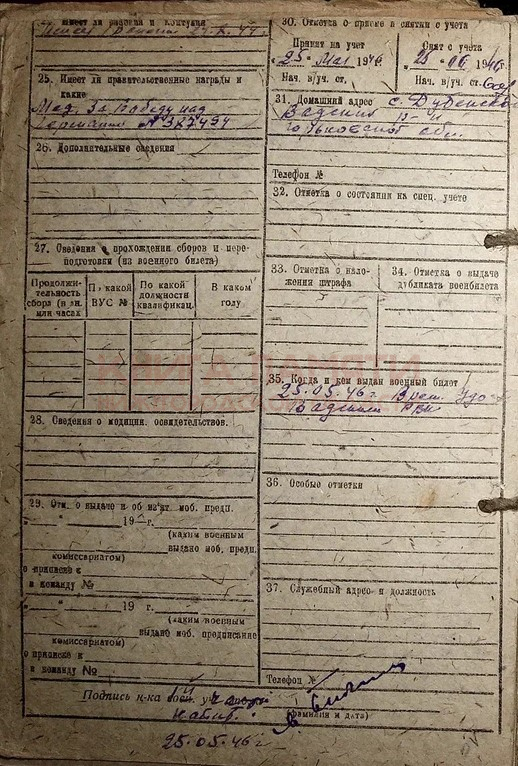 Имеет ли ранения и контузии
25. Имеет ли правительственные награды и
какие
Мед. За Победу над
Германией № 327494
26. Дополнительные сведения
27. Сведения о прохождении сборов и пере-
подготовки (из военного билета)
Продолжи-
тельность
сбора (в дн.
или часах
По какой
ВУС №
По какой
должности
квалификац.
В каком
году
28. Сведения о медицин. освидетельствов.
29. Отм. о выдаче и об из'ят. моб. предп.
" " 19 г.
(каким военным
выдано моб. предп.
комиссариатом)
о приписке к
и команду №
" " 19 г.
(каким военным
выдано моб. предписание
комиссариатом)
о приписке к
и команду №
Подпись н-ка
25.05.46 г
30. Отметка о приеме и снятии с учета
Принят на учет
25 Мая 1946
Нач. в/уч. ст.
Снят с учета
Нач. в/уч. ст.
31. Домашний адрес
Горьковской обл.
Телефон №
32. Отметка о состоянии на спец. учете
33. Отметка о нало-
жении штрафа
34. Отметка о выдаче
дубликата военбилета
35. Когда и кем выдан военный билет
25.05.46 г. Врем. удо
РВК
36. Особые отметки
37. Служебный адрес и должность
Телефон №
(фамилия и дата)
КНИГА ПАМЯТИ